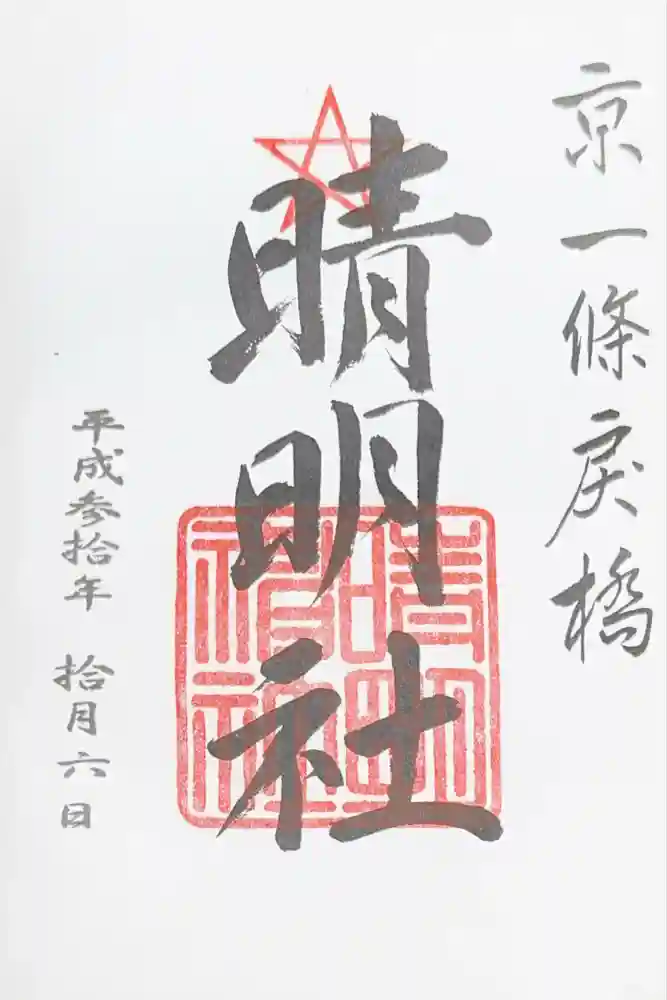 京一條戻橋
晴明社
平成参拾年 拾月六日